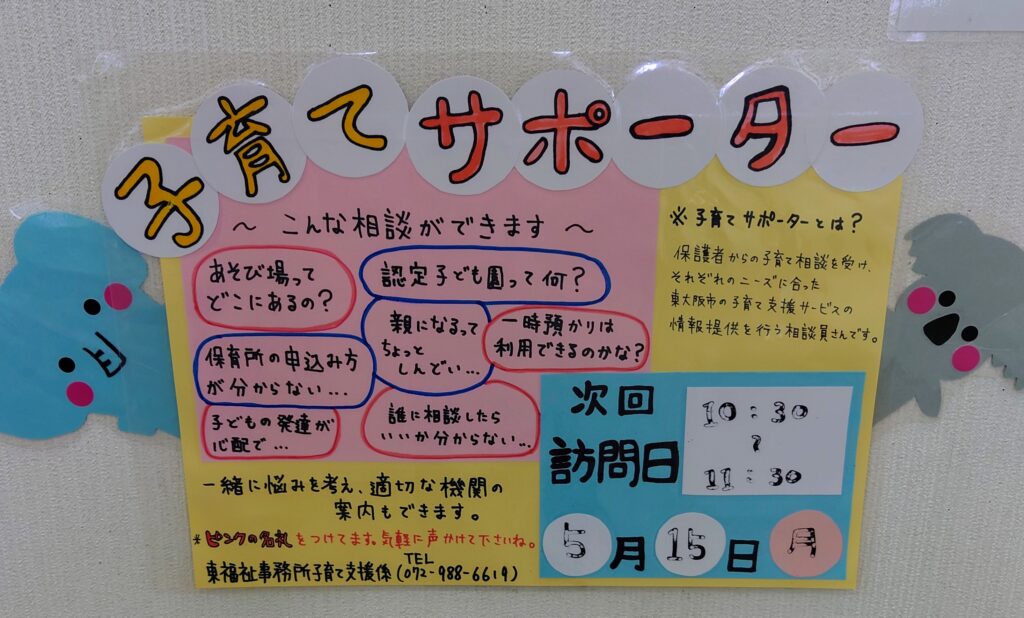 子育てサポーター
～ こんな相談ができます ～
あそび場って
どこにあるの？
認定子ども園って何？
親になるって
ちょっと
しんどい...
一時預かりは
利用できるのかな？
保育所の申込み方
が分からない...
子どもの発達が
心配で...
誰に相談したら
いいか分からない...
一緒に悩みを考え、適切な機関の
案内もできます。
*ピンクの名札をつけてます。気軽に声かけて下さいね。
東福祉事務所子育て支援係(TEL 072-988-6619)
※子育てサポーターとは？
保護者からの子育て相談を受け、
それぞれのニーズに合った
東大阪市の子育て支援サービスの
情報提供を行う相談員さんです。
次回
訪問日
10:30
～
11:30
5月15日 月